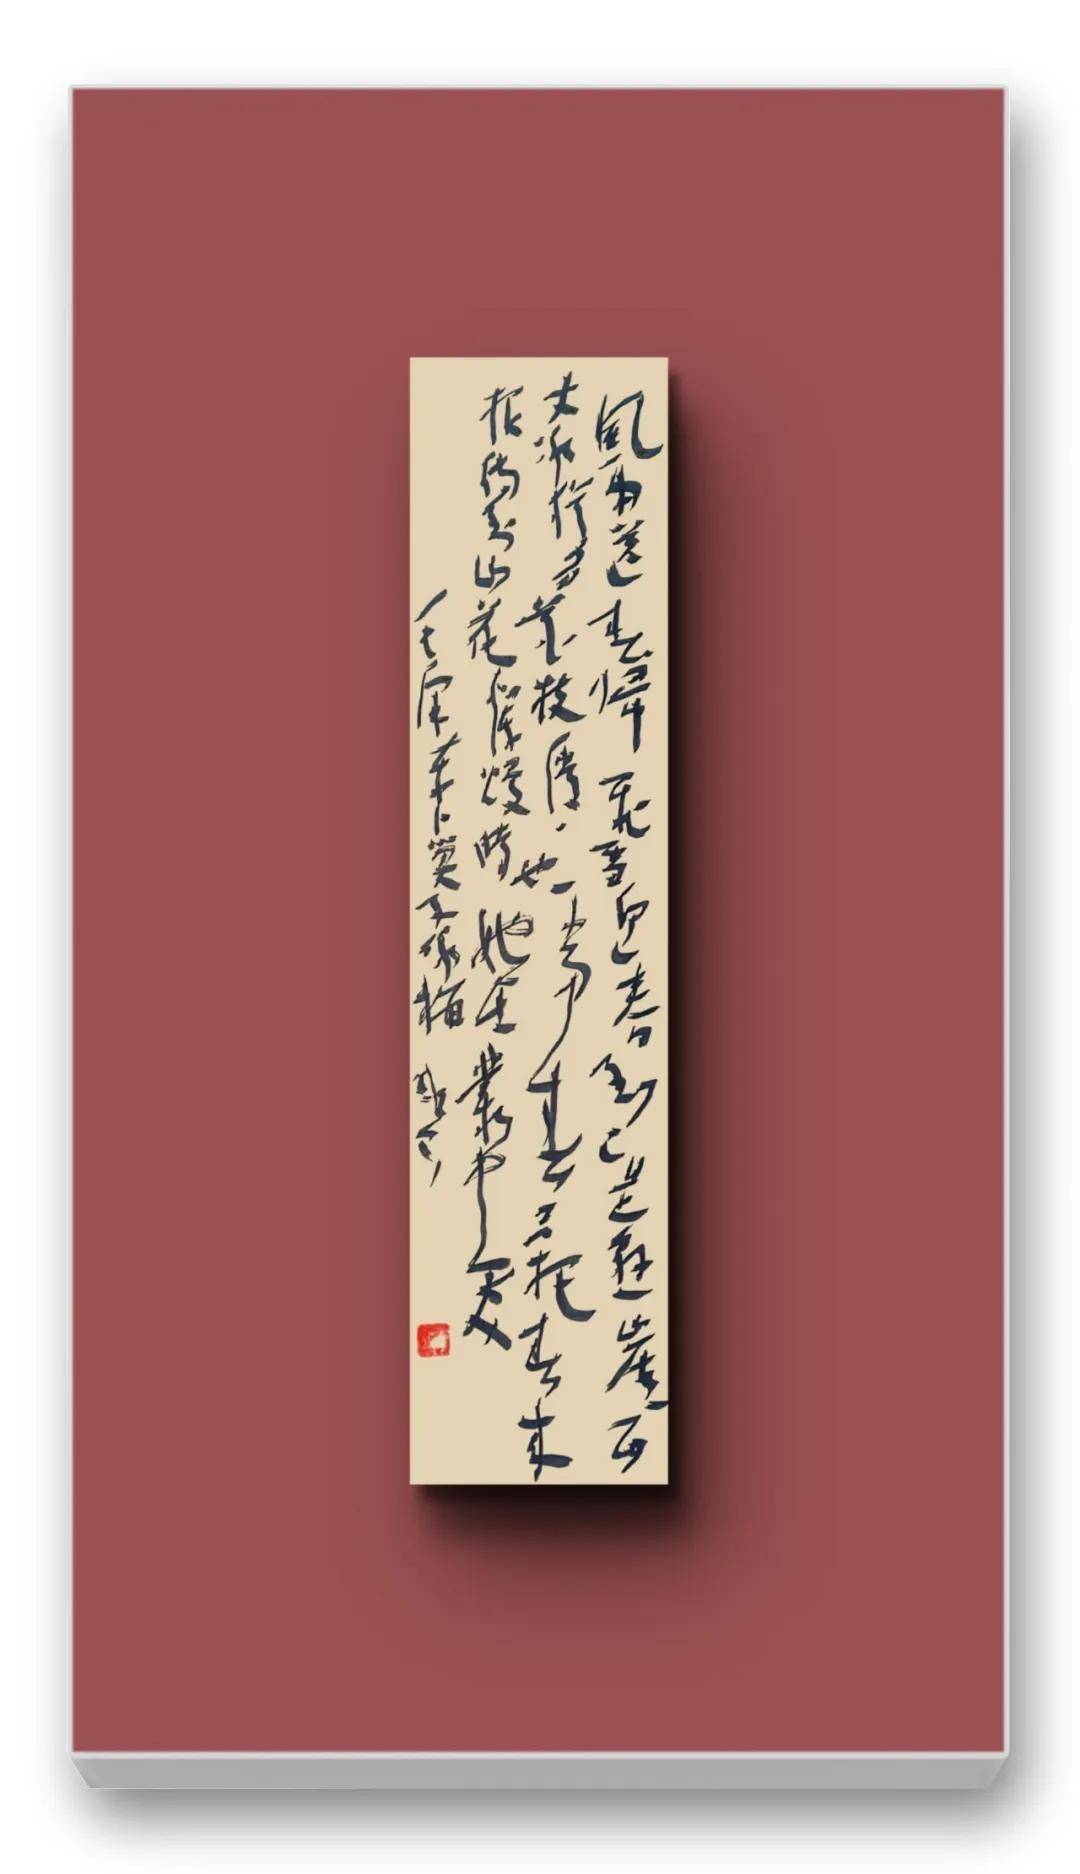 風雨送春歸飛雪迎春到已是懸崖百
丈冰猶有花枝俏、也不爭春只把春來
報待到山花爛熳時她在叢中笑
毛澤東卜算子詠梅